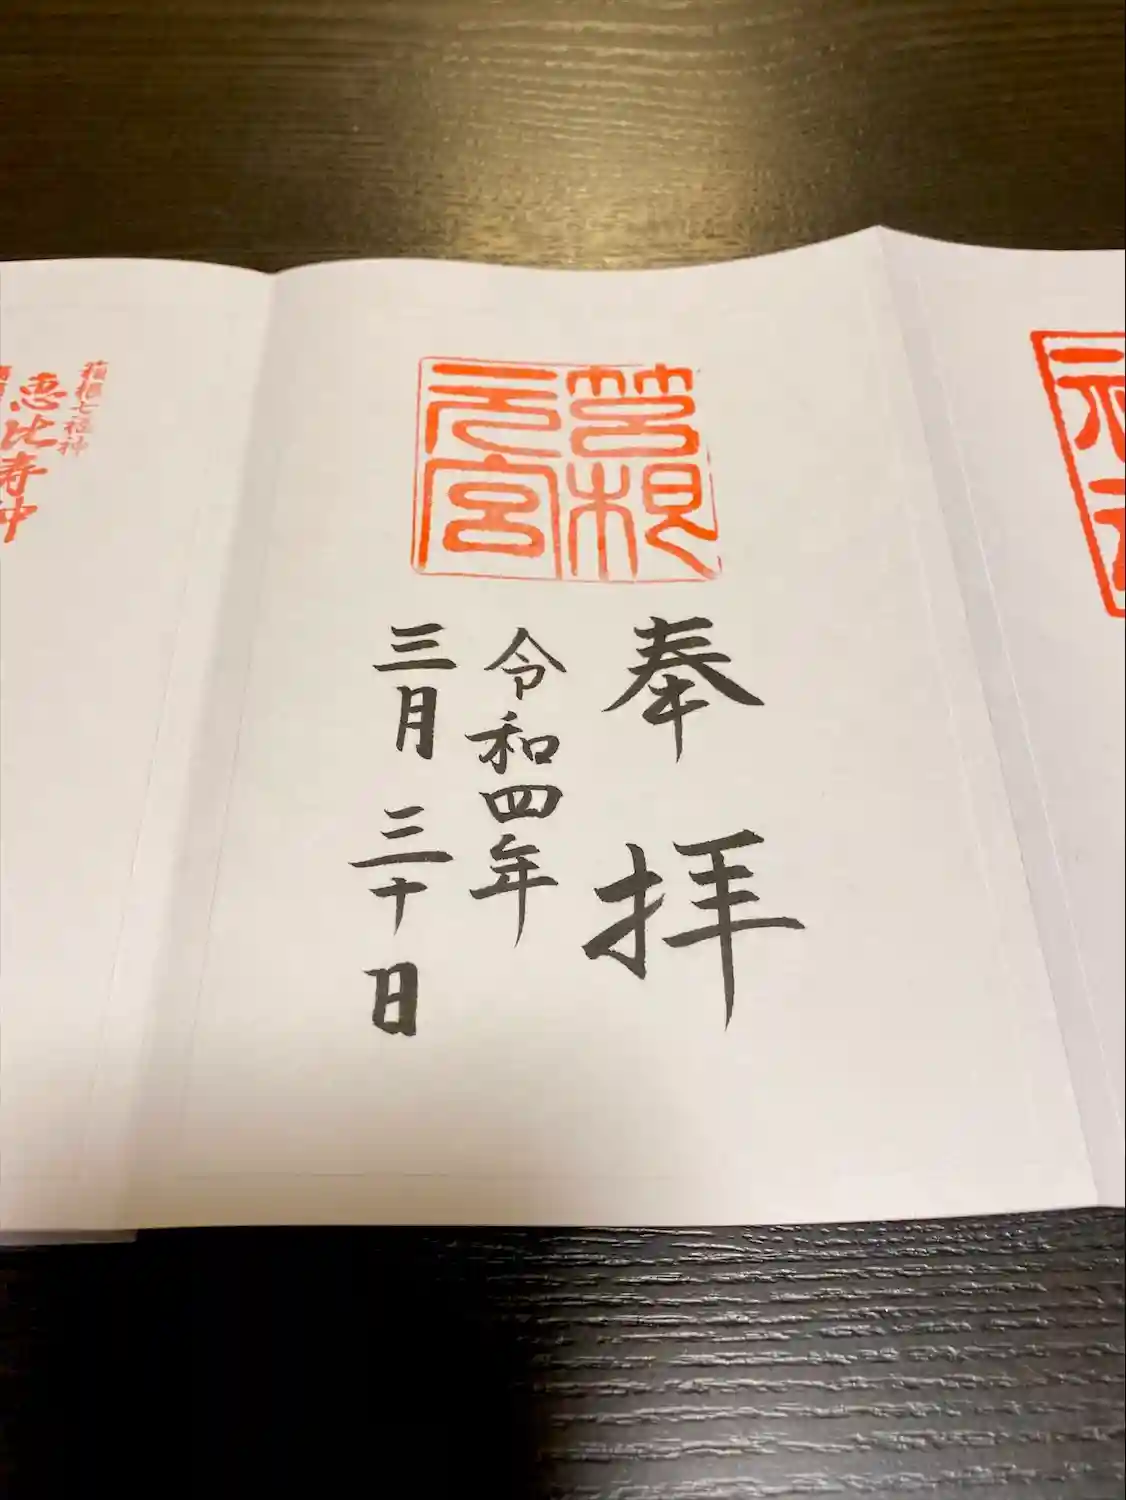 筥根
元宮
奉拝
令和四年
三月三十日
箱根七福神
恵比寿神